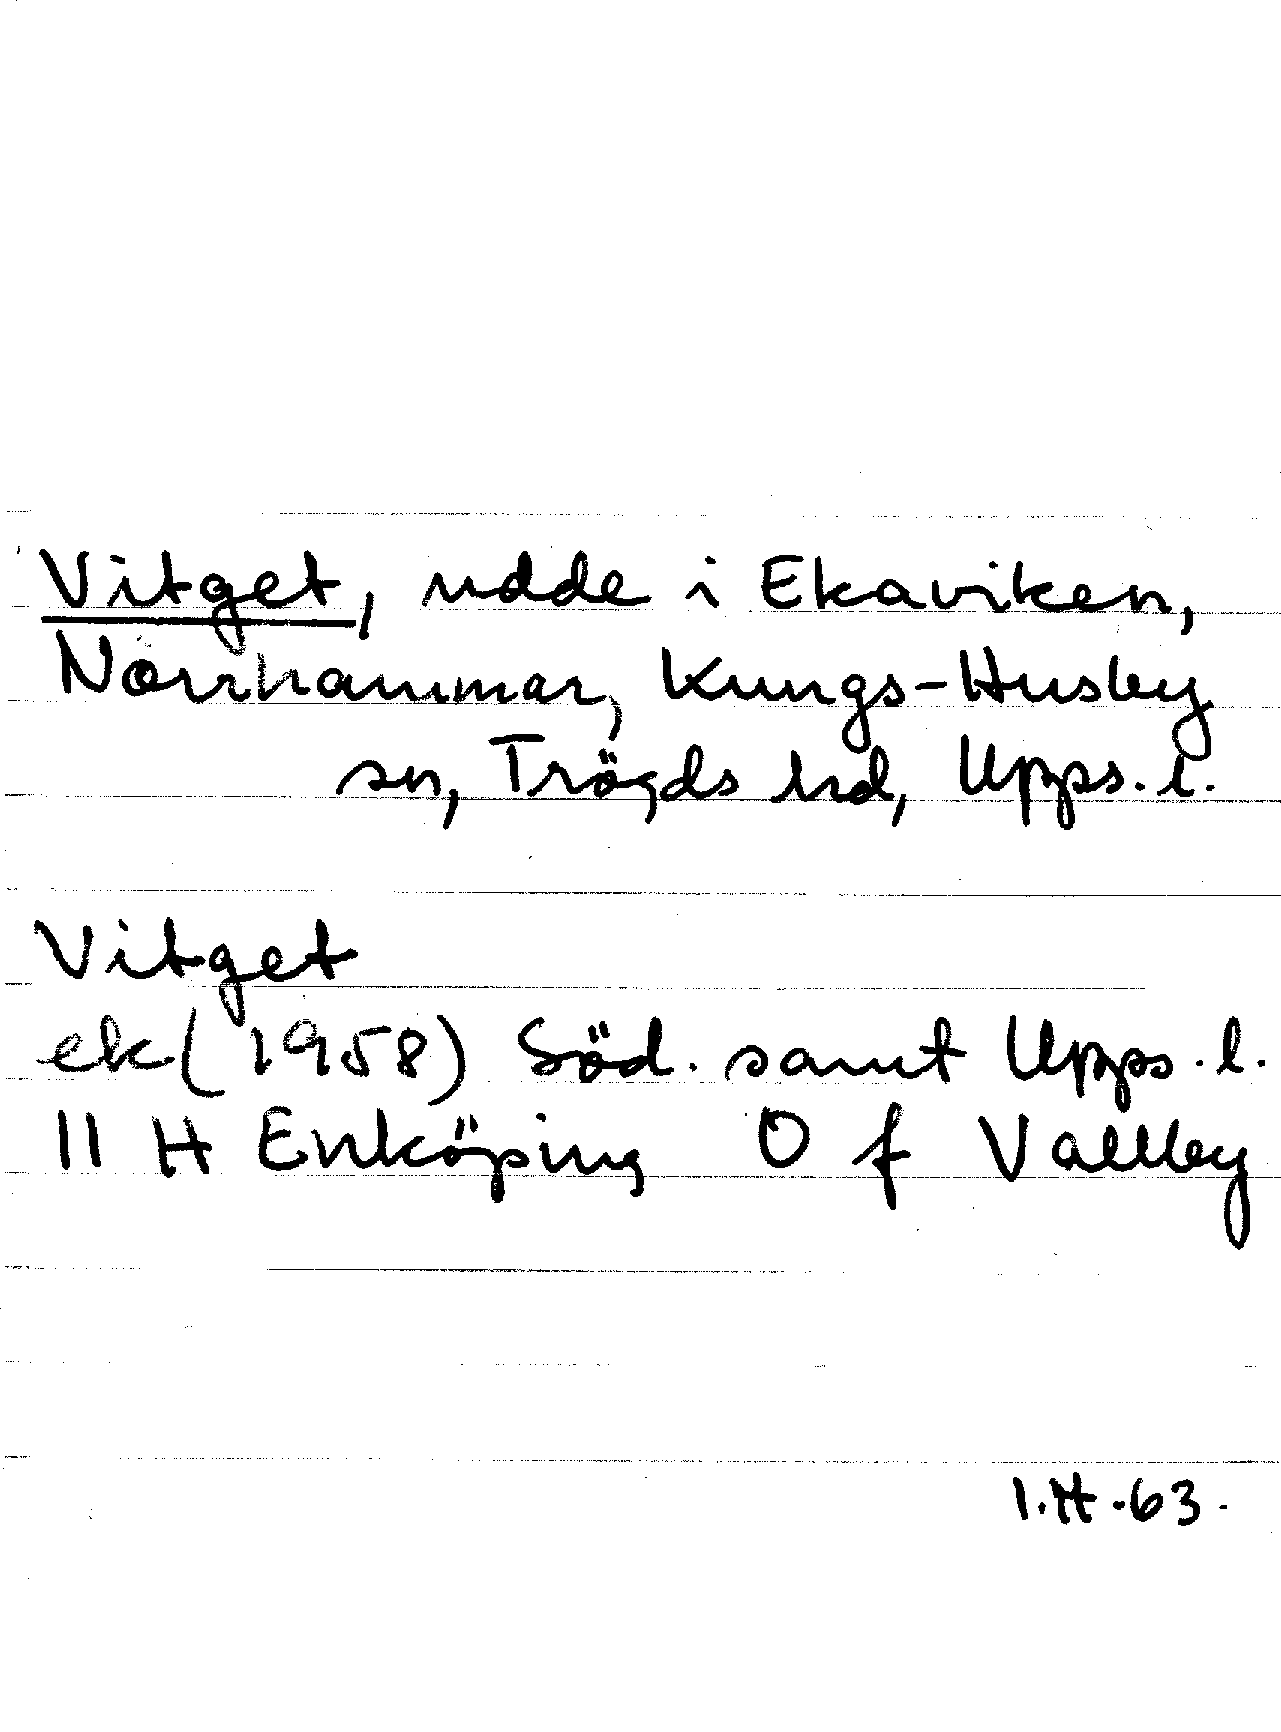 Vitget, udde i Ekaviken,
Norrhammar, Kungs-Husby
sn, Trögds hd, Upps. l.
Vitget
ek (1958) Söd. samt Upps. l.
11 H Enköping O f Vallby
I.H.-63.